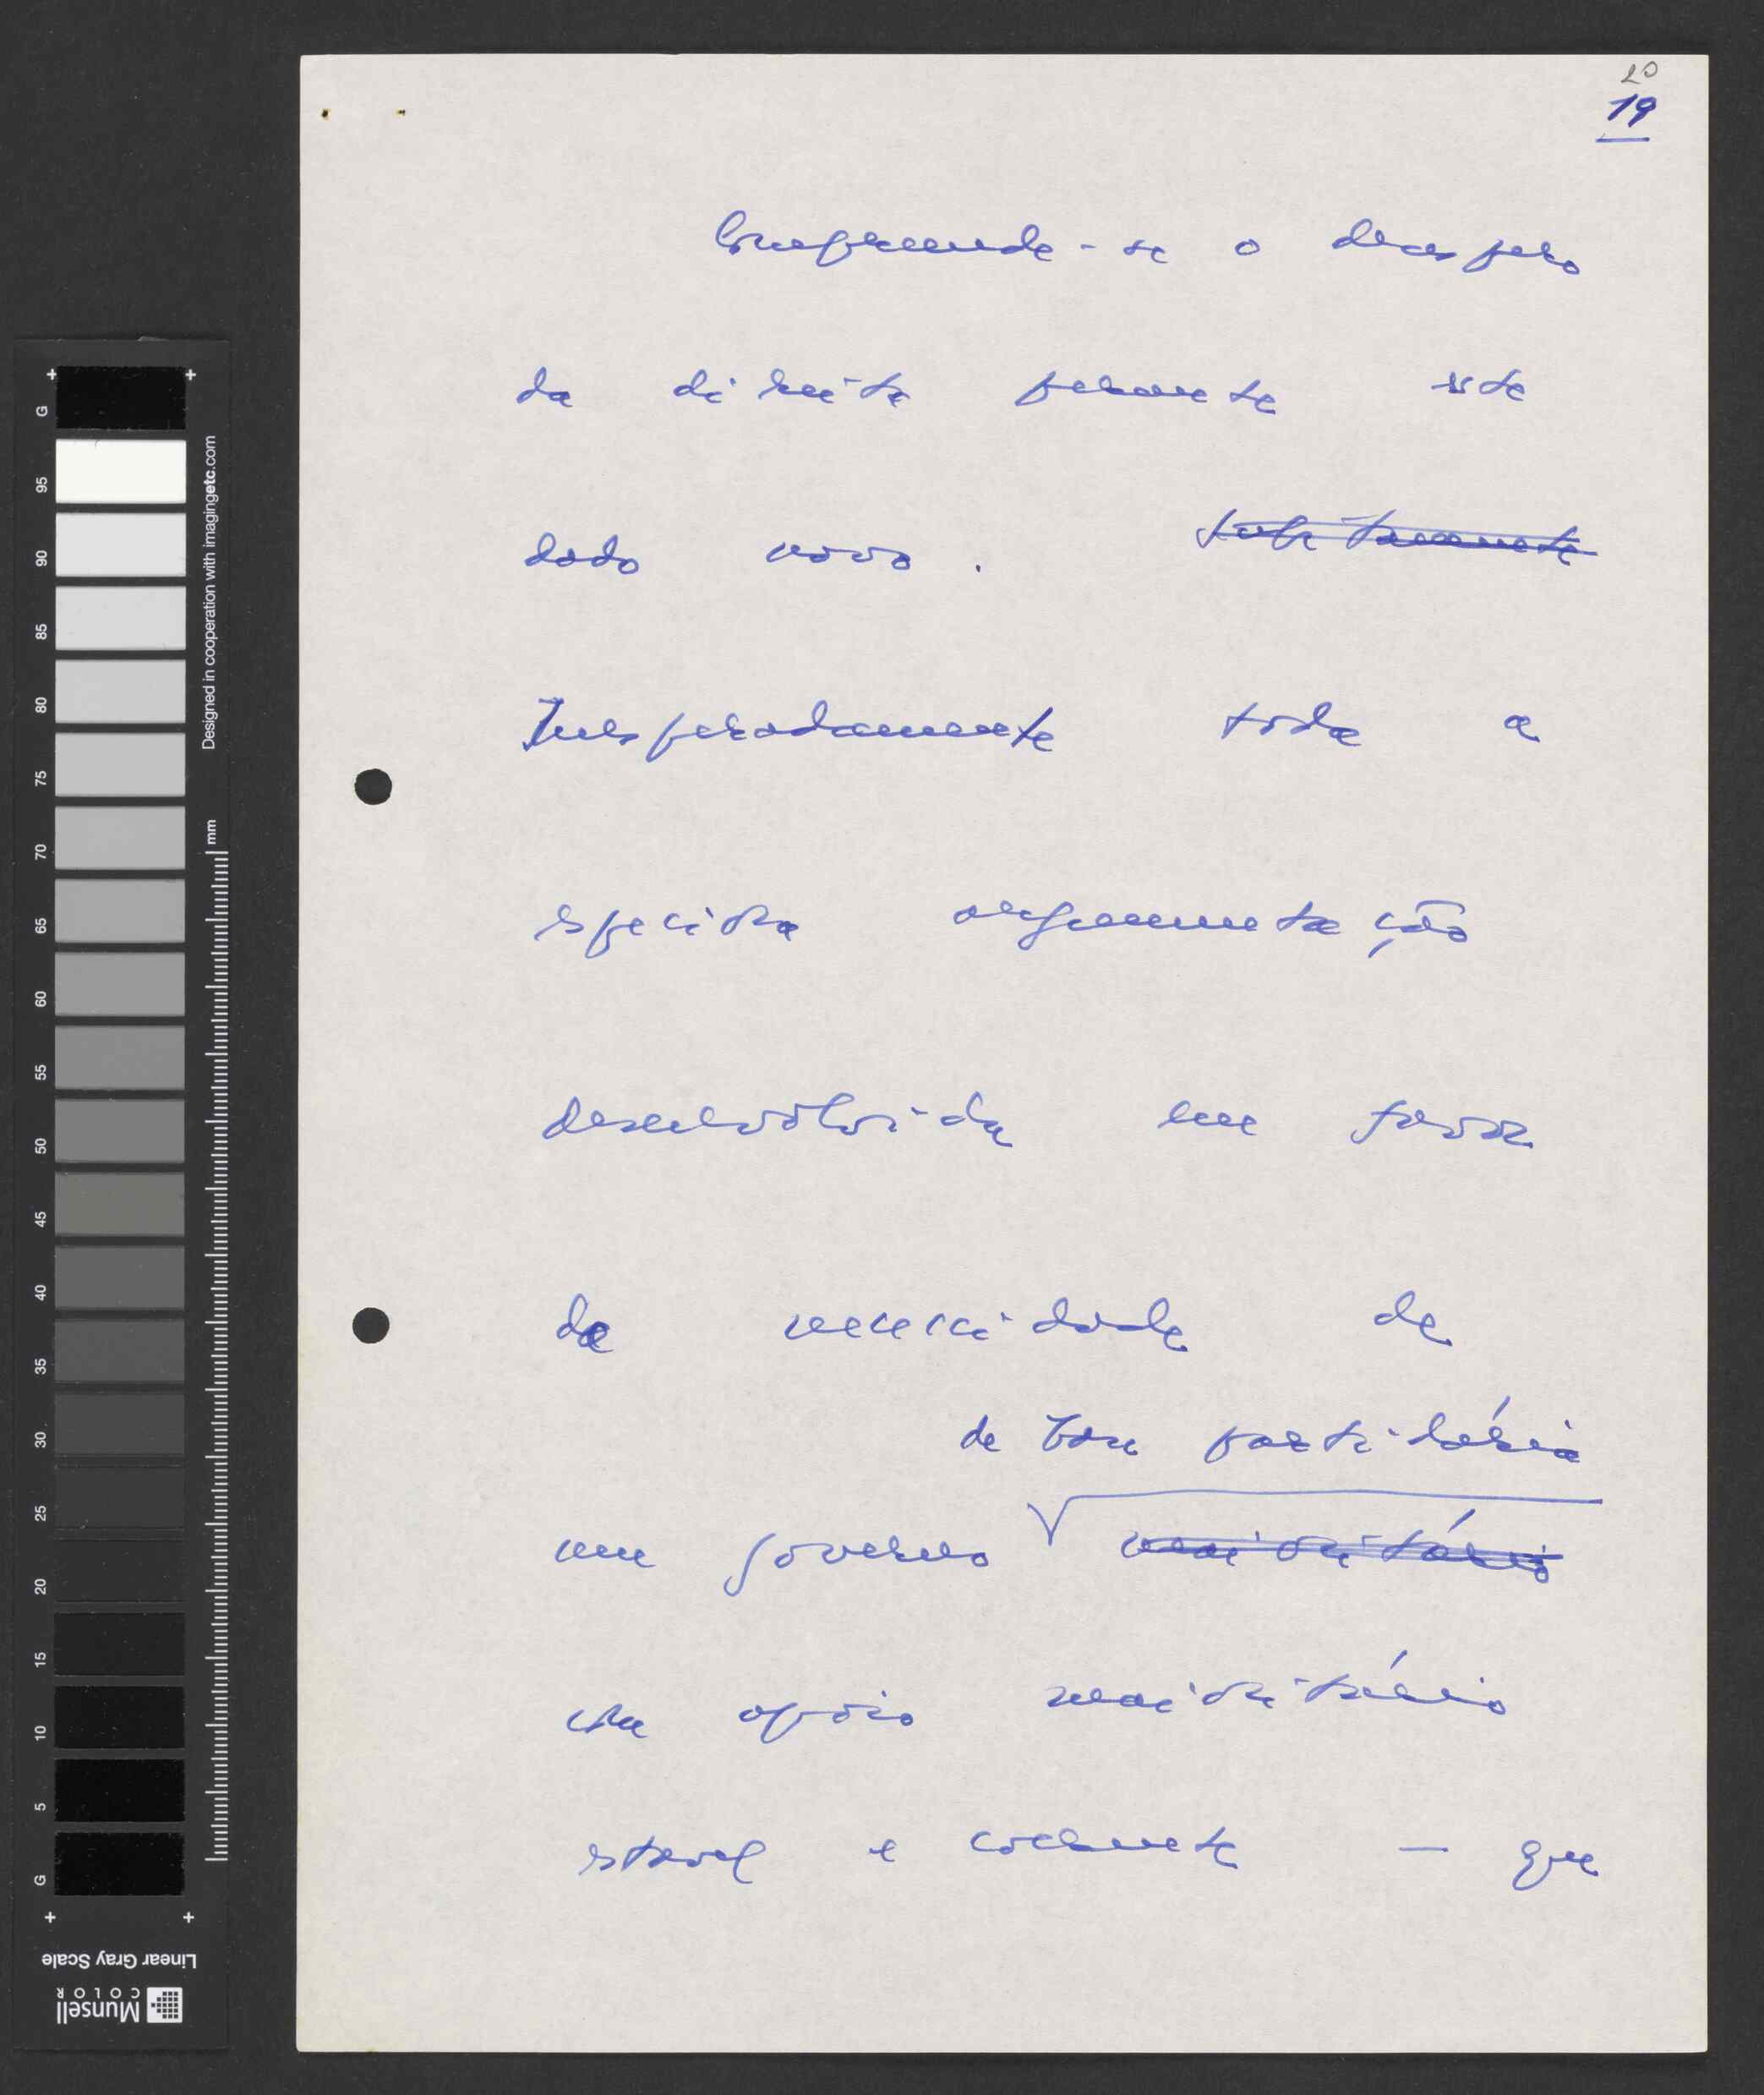 20
19
Compreende-se o desespero
da direita perante este
dado novo. ~~subitamente~~
Inesperadamente toda a
especiosa argumentação
desenvolvida em favor
da necessidade de
de base partidária
um governo ~~maioritário~~
com apoio maioritário
estavel e coerente — que
G 95 90 85 80 75 70 65 60 55 50 45 40 35 30 25 20 15 10 5 G
Designed in cooperation with imagingetc.com
mm
Linear Gray Scale
Munsell
COLOR